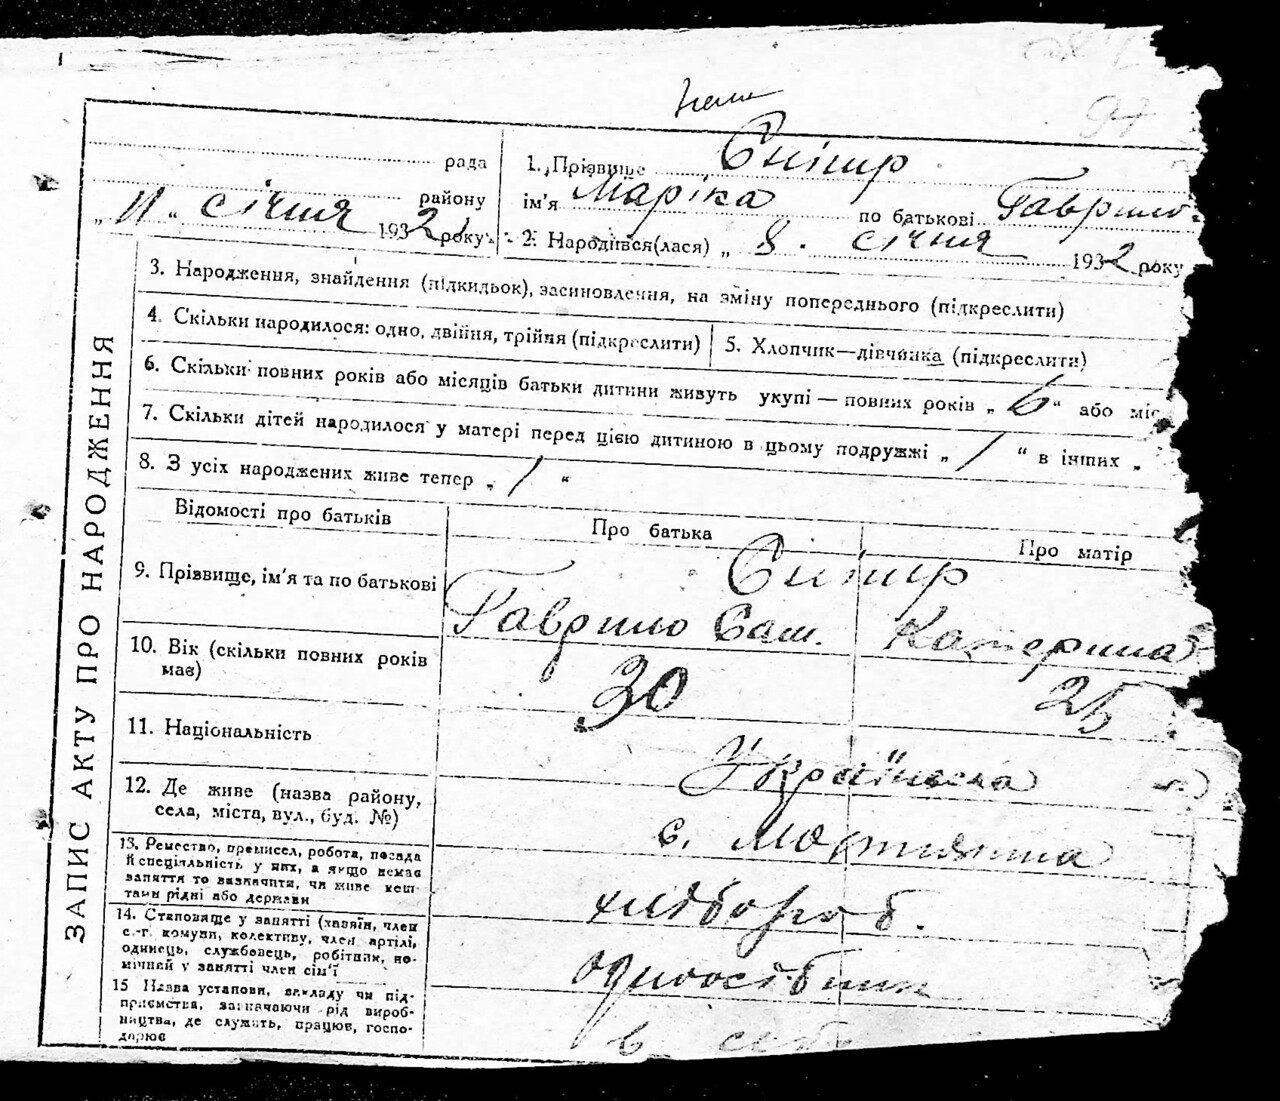 97
рада
району
„ 11 “ січня 1932 року.
1. Прізвище Снігир
ім'я Маріка по батькові Гаврило.
2. Народився(лася) „ 8. січня 1932 року
3. Народження, знайдення (підкидьок), засиновлення, на зміну попереднього (підкреслити)
4. Скільки народилося: одно, двійня, трійня (підкреслити)
5. Хлопчик—дівчинка (підкреслити)
6. Скільки повних років або місяців батьки дитини живуть укупі — повних років „ 6 “ або міс
7. Скільки дітей народилося у матері перед цією дитиною в цьому подружжі „ 1 “ в інших „
8. З усіх народжених живе тепер „ 1 “
Відомості про батьків
Про батька
Про матір
9. Прізвище, ім'я та по батькові
Снігир
Гаврило Сам. Катерина
10. Вік (скільки повних років має)
30 25
11. Національність
Українська
12. Де живе (назва району, села, міста, вул., буд. №)
с.
13. Ремество, премисел, робота, посада й спеціяльність у них, а якщо немає заняття то зазначити, чи живе коштами рідні або держави
хлібороб.
14. Становище у занятті (хазяїн, член с.-г. комуни, колективу, член артілі, одинець, службовець, робітник, помічний у занятті член сім'ї
одноосібник
15 Назва установи, закладу чи підприємства, зазначаючи рід виробництва, де служить, працює, господарює
в
ЗАПИС АКТУ ПРО НАРОДЖЕННЯ